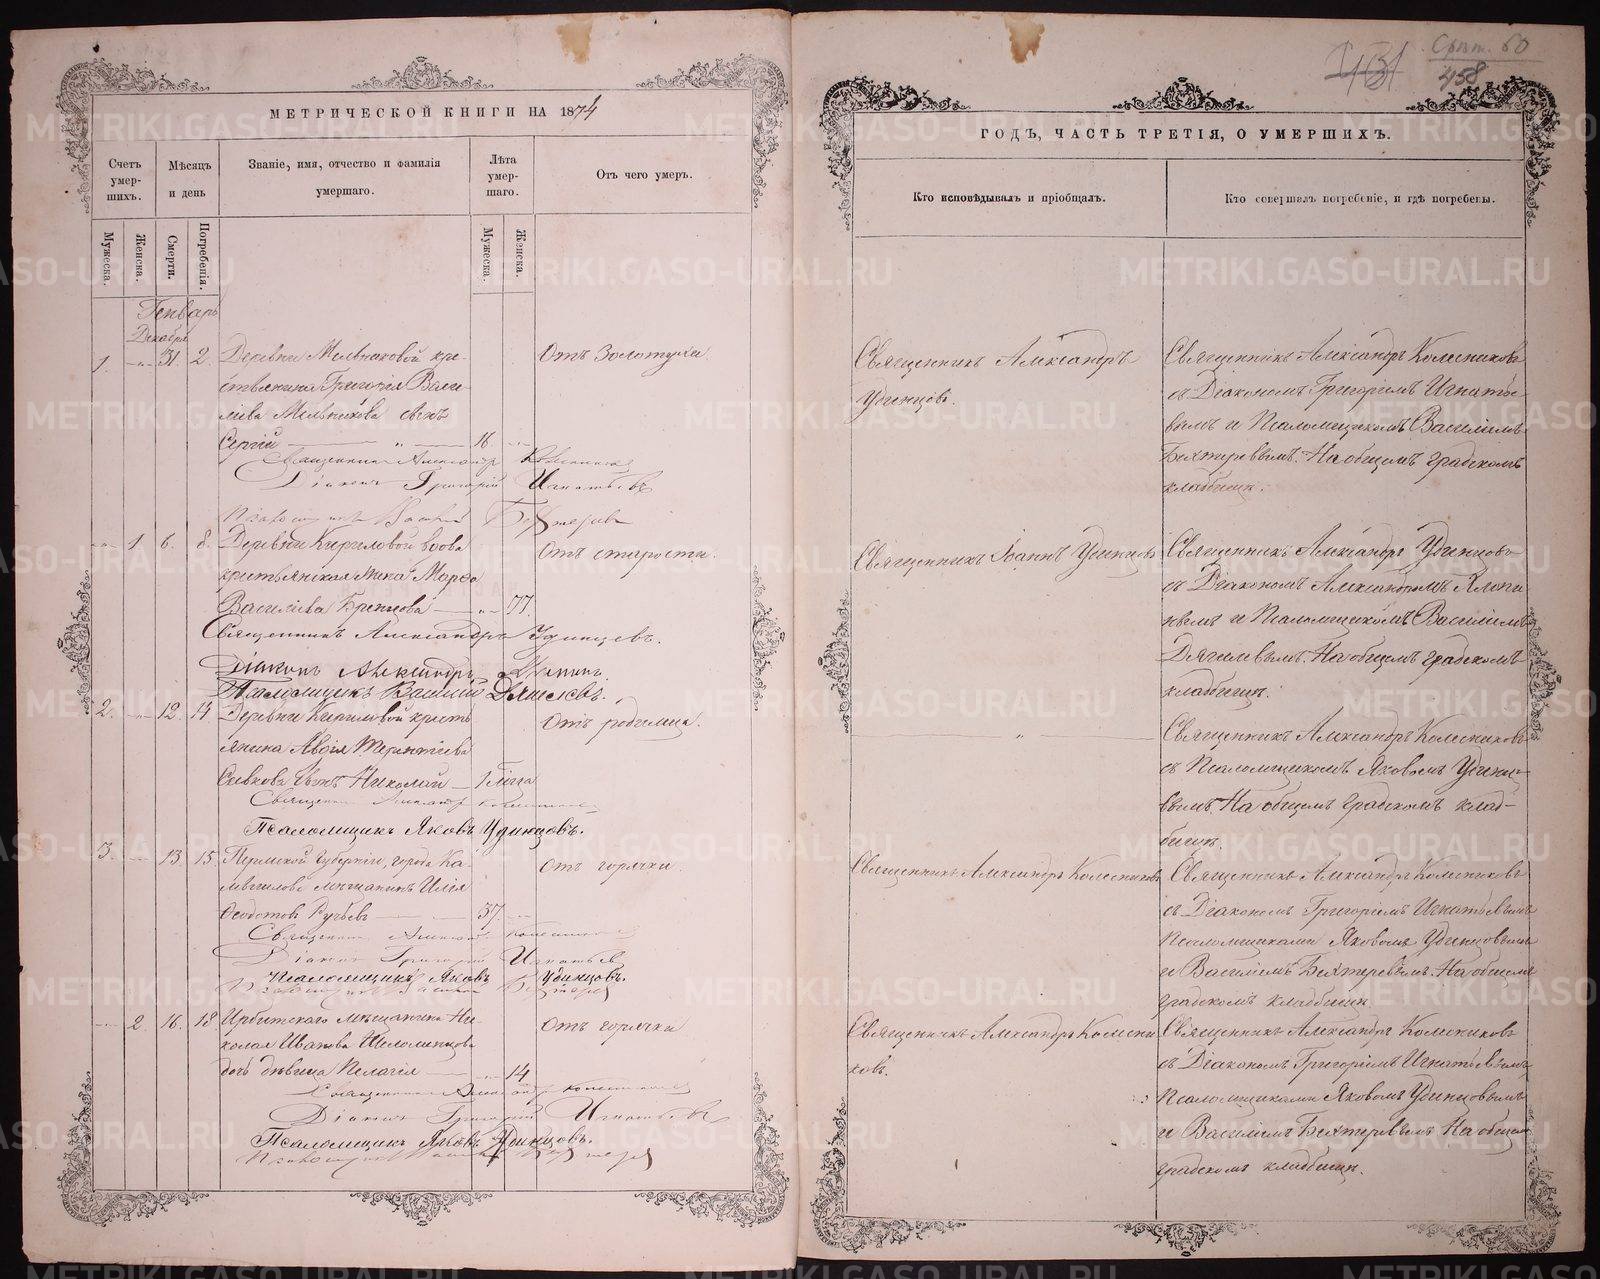 МЕТРИЧЕСКОЙ КНИГИ НА 1874
Счетъ умер-шихъ.
Мѣсяцъ и день
Званіе, имя, отчество и фамилія умершаго.
Лѣта умер-шаго.
Отъ чего умеръ.
Мужеска.
Женска.
Смерти.
Погребенія.
Мужеска.
Женска.
Генварь
Декабря
1. 31 2. Деревни Мельниковой кре-
стьянина Григорія Васи-
ліева Мельникова сынъ
Сергій 16
Отъ золотухи
Священникъ Александръ Колесниковъ
Діаконъ Григорій Игнатьевъ
1. 6. 8. Деревни Кириловой вдова
крестьянская жена Марѳа
Василіева 77.
Отъ старости.
Священникъ Александръ Удинцевъ.
Діаконъ Александръ
Псаломщикъ Василій Дягилевъ.
2. 12. 14 Деревни Кириловой кресть
янина Авдія Терентіева
Сивкова сынъ Николай 1 года
Отъ родимца.
Священникъ Александръ Колесниковъ
Псаломщикъ Яковъ Удинцовъ.
3. 13. 15. Пермской губерніи, города Ка-
мышлова мѣщанинъ Илія
Ѳедотовъ Ручьевъ 37.
Отъ горячки.
Священникъ Александръ Колесниковъ
Діаконъ Григорій Игнатьевъ
Псаломщикъ Яковъ Удинцовъ.
2. 16. 18 Ирбитскаго мѣщанина Ни-
колая Иванова
дочь дѣвица Пелагія 14
Отъ горячки
Священникъ Александръ Колесниковъ
Діаконъ Григорій Игнатьевъ
Псаломщикъ Яковъ Удинцовъ.
Срвт. 60
458
ГОДЪ, ЧАСТЬ ТРЕТІЯ, О УМЕРШИХЪ.
Кто исповѣдывалъ и пріобщалъ.
Кто совершалъ погребеніе, и гдѣ погребены.
Священникъ Александръ
Удинцовъ.
Священникъ Александръ Колесниковъ
съ Діакономъ Григоріемъ Игнатье-
вымъ и Псаломщикомъ Василіемъ
Бехтеревымъ. На общемъ градскомъ
кладбищѣ.
Священникъ Іоаннъ Удинцевъ
Священникъ Александръ Удинцовъ
съ Діакономъ Александромъ
и Псаломщикомъ Василіемъ
Дягилевымъ. На общемъ градскомъ
кладбищѣ.
Священникъ Александръ Колесниковъ
съ Псаломщикомъ Яковомъ Удинцо-
вымъ. На общемъ градскомъ клад-
бищѣ.
Священникъ Александръ Колесниковъ
Священникъ Александръ Колесниковъ
съ Діакономъ Григоріемъ Игнатьевымъ
Псаломщиками Яковомъ Удинцовымъ
и Василіемъ Бехтеревымъ. На общемъ
градскомъ кладбищѣ.
Священникъ Александръ Колесни
ковъ.
Священникъ Александръ Колесниковъ
съ Діакономъ Григоріемъ Игнатьевымъ
Псаломщиками Яковомъ Удинцовымъ
и Василіемъ Бехтеревымъ На общемъ
градскомъ кладбищѣ.
METRIKI.GASO-URAL.RU